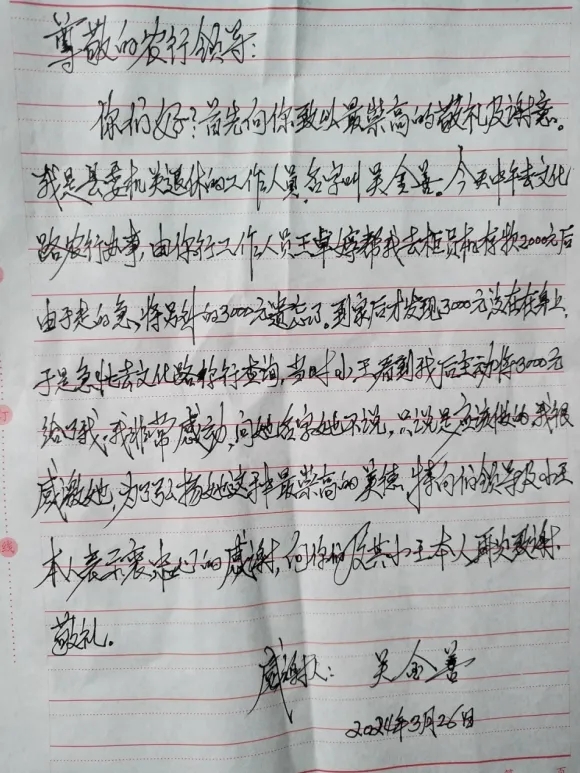 尊敬的农行领导:
你们好?首先向你致以最崇高的敬礼及谢意。
我是县委机关退休的工作人员,名字叫吴金善。今天中午去文化
路农行办事,由你行工作人员王卓婷帮我去柜员机存款2000元后
由于走的急,将另外的3000元遗忘了。到家后才发现3000元没在在身上,
于是急忙去文化路你行查询,当时小王看到我后主动将3000元
给了我,我非常感动,问她名字她不说,只说是应该做的,我很
感激她,为了弘扬她这种最崇高的美德,特向们领导及小王
本人表示衷忠心的感谢,向你们及其小王本人再次致谢.
敬礼.
感谢人: 吴金善
2024年3月26日
订
线